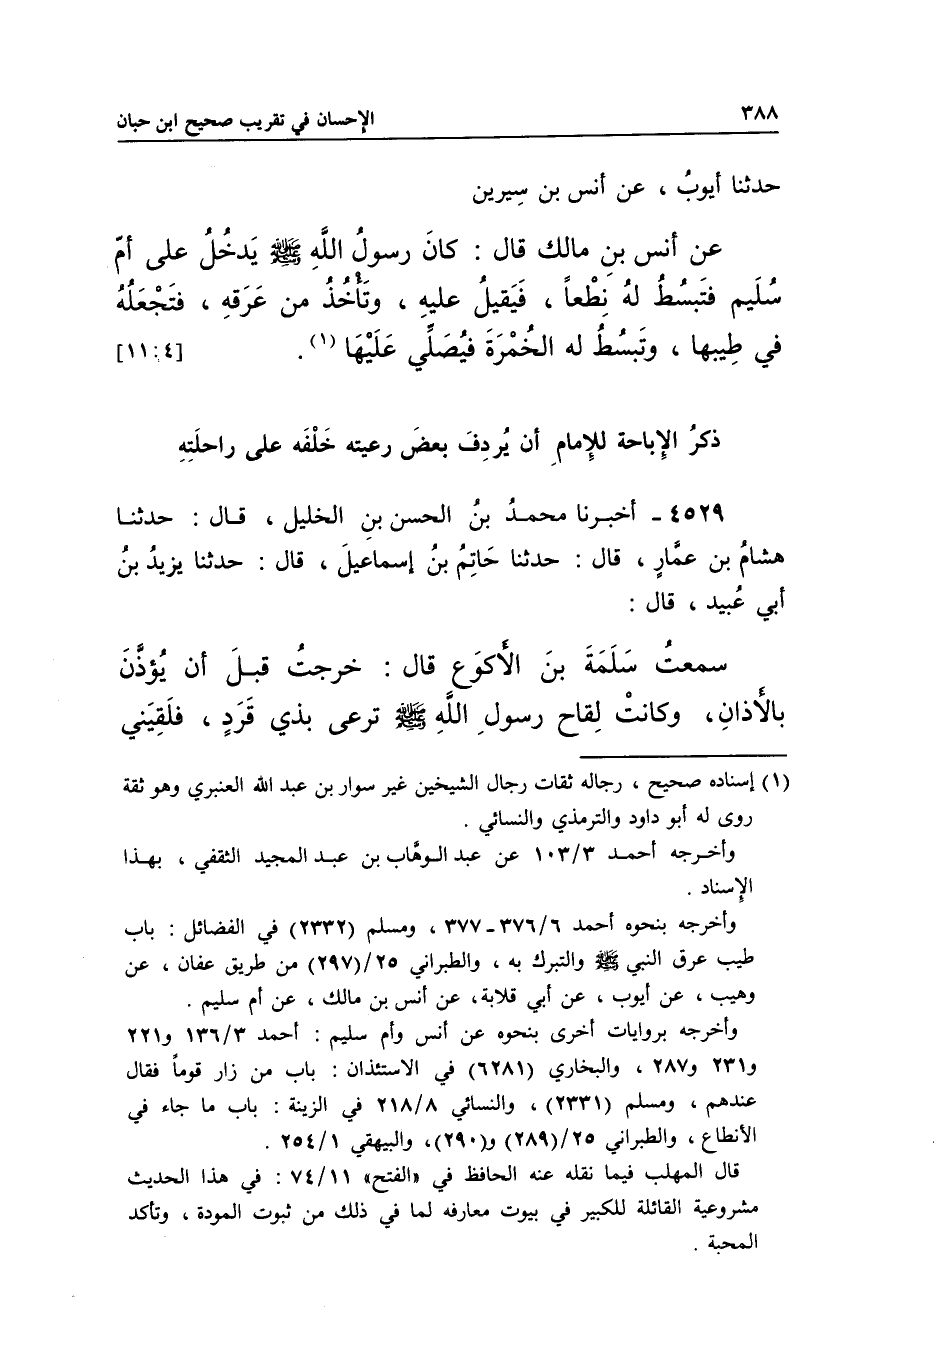 ٣٨٨
الإحسان في تقريب صحيح ابن حبان
حدثنا أيوبُ ، عن أنس بن سِيرين
عن أنس بنِ مالك قال : كانَ رسولُ اللَّهِ ﷺ يَدخُلُ على أمّ
سُلَيم فتَبسُطُ لهُ نِطْعاً ، فَيَقيلُ عليهِ ، وتَأْخُذُ من عَرَقهِ ، فتَجْعَلُهُ
في طِيبها ، وتَبسُطُ له الخُمْرَةَ فيُصَلِّي عَلَيْهَا (١) . [٤ : ١١]
ذكرُ الإباحة للإمامِ أن يُردِفَ بعضَ رعيته خَلْفَه على راحلَتِهِ
٤٥٢٩ ـ أخبرنا محمدُ بنُ الحسن بنِ الخليل ، قال : حدثنا
هشامُ بن عمَّارٍ ، قال : حدثنا حَاتِمُ بنُ إسماعيلَ ، قال : حدثنا يزيدُ بنُ
أبي عُبيد ، قال :
سمعتُ سَلَمَةَ بنَ الأَكوَعِ قال : خرجتُ قبلَ أن يُؤذَّنَ
بالأَذانِ، وكانتْ لِقاح رسولِ اللَّهِ ﷺ ترعى بذي قَرَدٍ ، فلَقِيَني
(١) إسناده صحيح ، رجاله ثقات رجال الشيخين غير سوار بن عبد الله العنبري وهو ثقة
روى له أبو داود والترمذي والنسائي .
وأخرجه أحمد ١٠٣/٣ عن عبد الوهَّاب بن عبد المجيد الثقفي ، بهذا
الإسناد .
وأخرجه بنحوه أحمد ٣٧٦/٦ ـ ٣٧٧ ، ومسلم (٢٣٣٢) في الفضائل : باب
طيب عرق النبي ﷺ والتبرك به ، والطبراني ٢٥/(٢٩٧) من طريق عفان ، عن
وهيب ، عن أيوب ، عن أبي قلابة، عن أنس بن مالك ، عن أم سليم .
وأخرجه بروايات أخرى بنحوه عن أنس وأم سليم : أحمد ١٣٦/٣ و٢٢١
و٢٣١ و٢٨٧ ، والبخاري (٦٢٨١) في الاستئذان : باب من زار قوماً فقال
عندهم ، ومسلم (٢٣٣١) ، والنسائي ٢١٨/٨ في الزينة : باب ما جاء في
الأنطاع ، والطبراني ٢٥/(٢٨٩) و(٢٩٠)، والبيهقي ٢٥٤/١ .
قال المهلب فيما نقله عنه الحافظ في «الفتح» ٧٤/١١ : في هذا الحديث
مشروعية القائلة للكبير في بيوت معارفه لما في ذلك من ثبوت المودة ، وتأكد
المحبة .